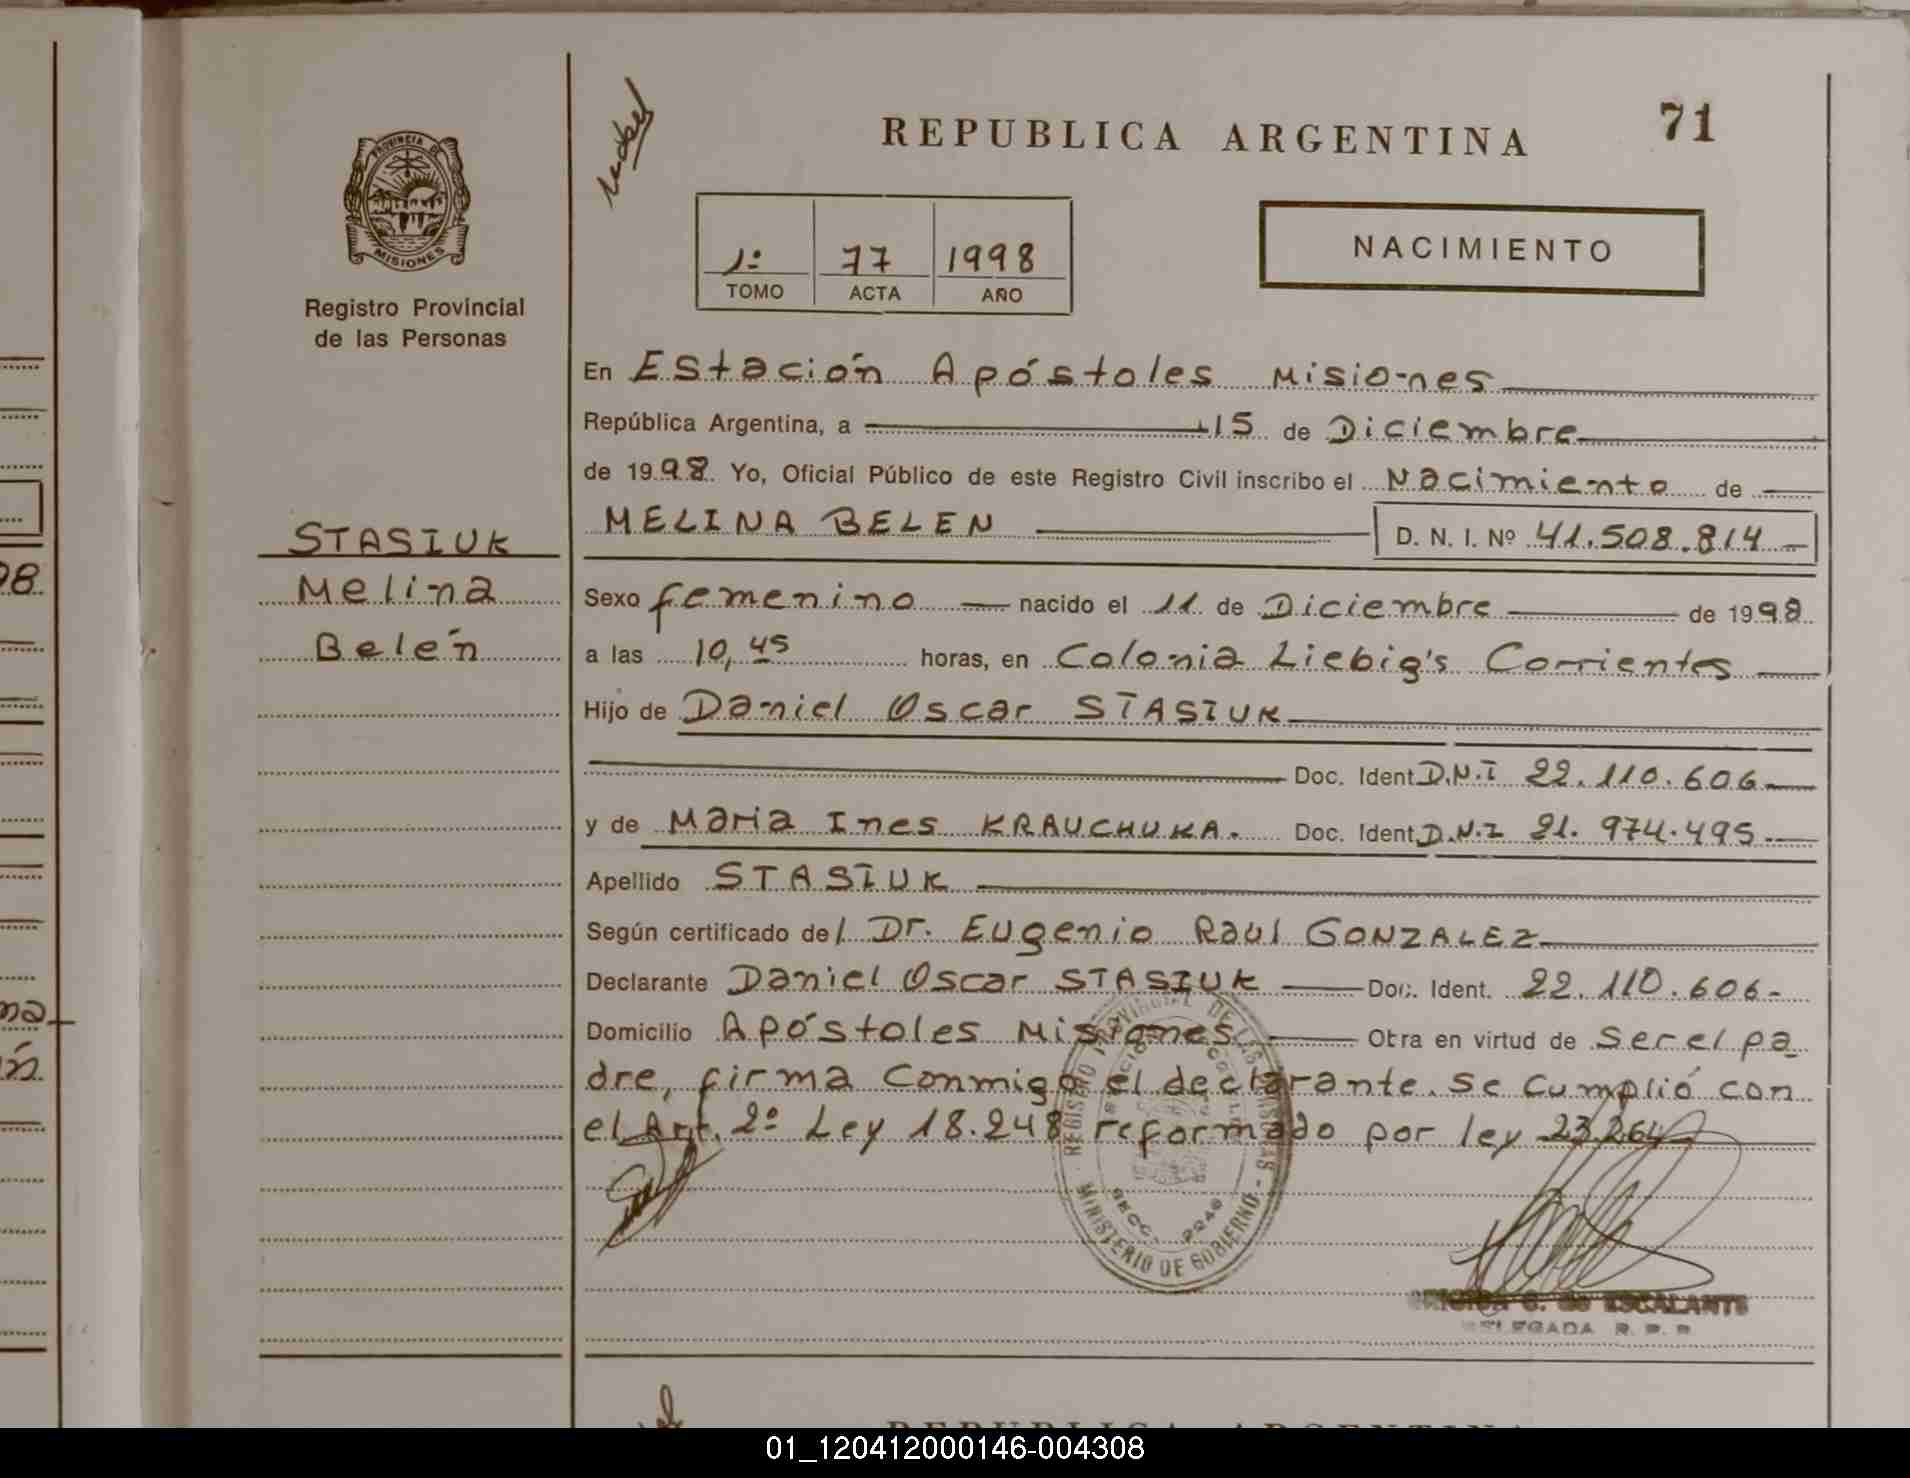 REPUBLICA ARGENTINA
71
PROVINCIA DE
MISIONES
Registro Provincial
de las Personas
1º 77 1998
TOMO ACTA AÑO
NACIMIENTO
STASIUK
Melina
Belén
En Estación Apóstoles Misiones
República Argentina, a 15 de Diciembre
de 1998. Yo, Oficial Público de este Registro Civil inscribo el Nacimiento de
MELINA BELEN D. N. I. Nº 41.508.814
Sexo femenino nacido el 11 de Diciembre de 1998
a las 10,45 horas, en Colonia Liebig's Corrientes
Hijo de Daniel Oscar STASIUK
Doc. Ident. D.N.I 22.110.606
y de Maria Ines KRAUCHUKA. Doc. Ident. D.N.I 21.974.495
Apellido STASIUK
Según certificado del Dr. Eugenio Raul GONZALEZ
Declarante Daniel Oscar STASIUK Doc. Ident. 22.110.606-
Domicilio Apóstoles Misiones Otra en virtud de ser el pa
dre, firma conmigo el declarante. Se cumplió con
el Art. 2º Ley 18.248 reformado por ley 23.264
REGISTRO PROVINCIAL DE LAS PERSONAS - MINISTERIO DE GOBIERNO
de ESCALANTE
DELEGADA R. P. P.
REPUBLICA ARGENTINA
01_120412000146-004308